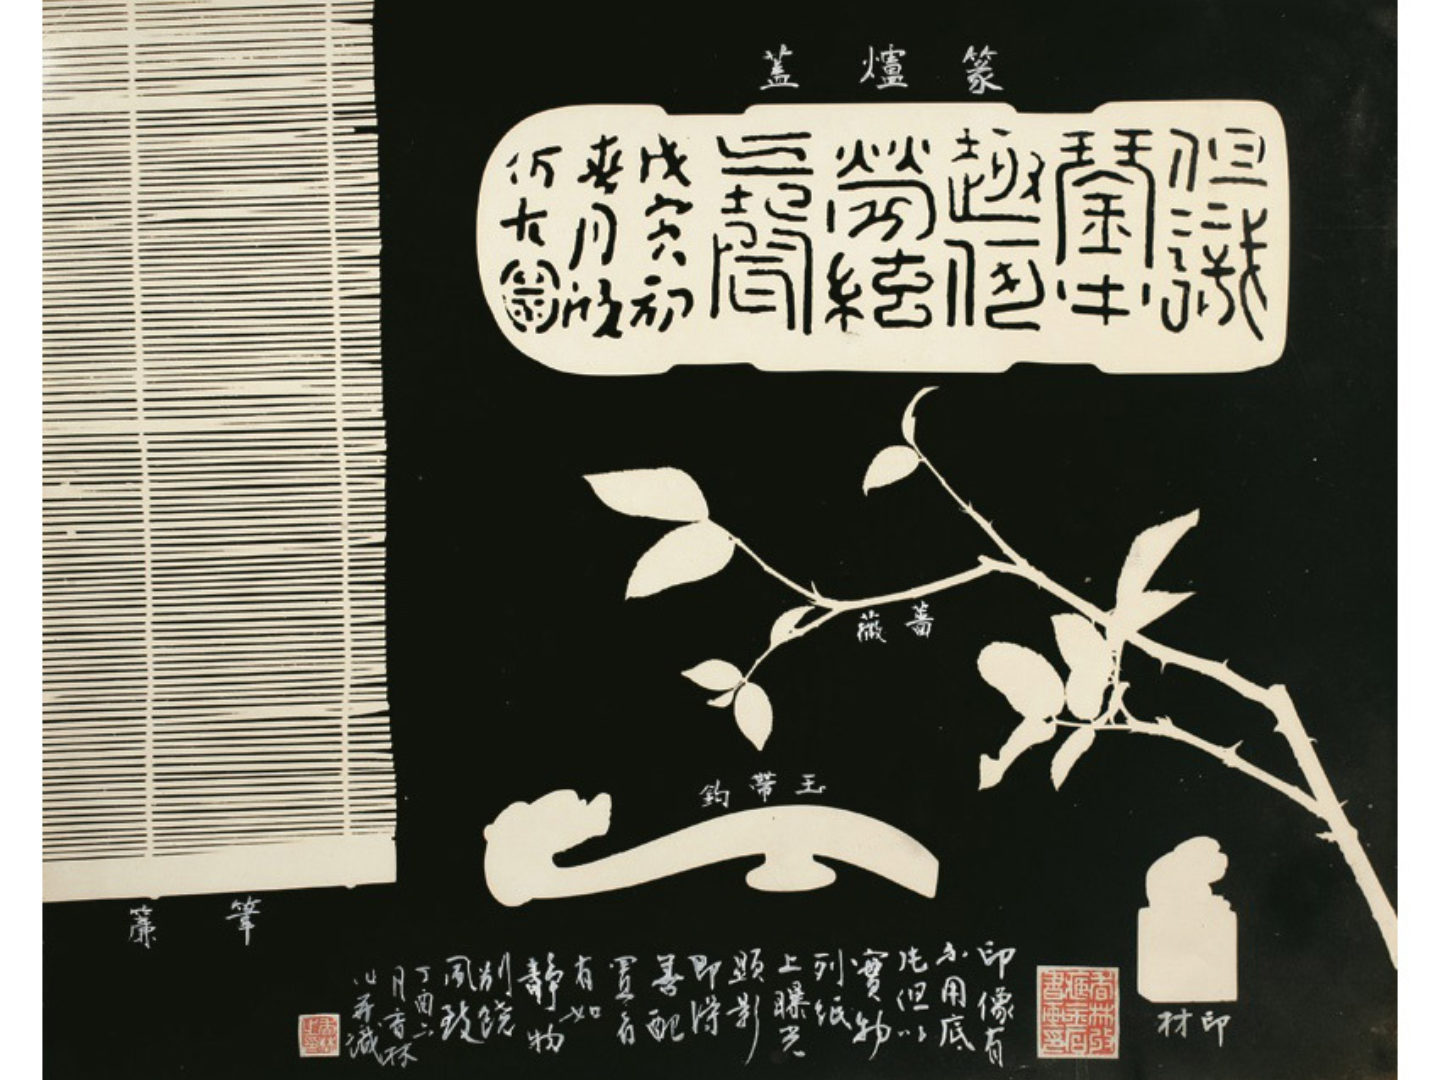 篆爐蓋
但識
琴中
趣何
勞絃
上聲
戊寅初
春月
薔薇
玉帶鈎
筆簾
印材
印像有
不用底
片但以
實物
列紙
上曝光
顯影
即得
善配
置者
有如
靜物
別饒
風致
丁酉六
月音林
作并識